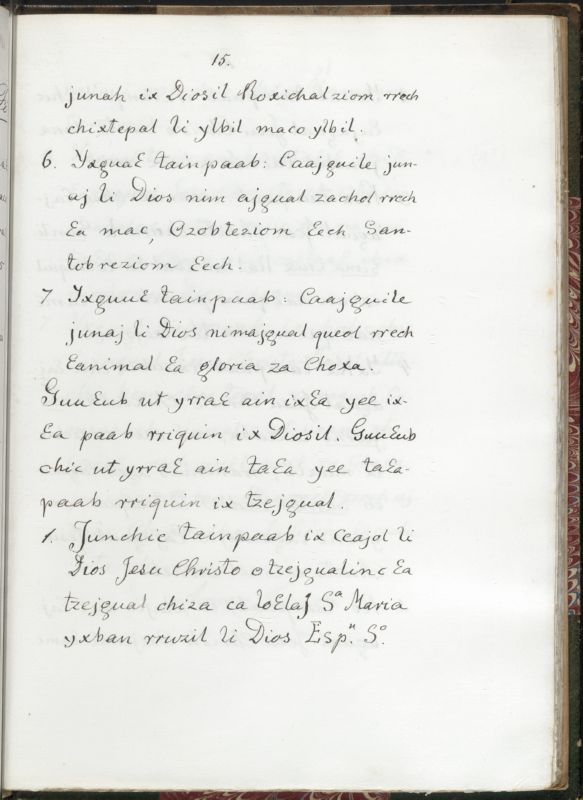 15.
junah ix Diosil Roxichalziom rrech
chixtepal li ylbil maco ylbil.
6. Yxguaɛ tainpaab: Caajguile jun-
aj li Dios nim ajgual zachol rrech
ɛa mac, Ozobteziom ɛech San-
tobreziom ɛech.
7. Yxguuɛ tainpaab: Caajguile
junaj li Dios nimajgual queol rrech
ɛanimal ɛa gloria za Choxa.
Guuɛub ut yrraɛ ain ixɛa yee ix-
ɛa paab rriquin ix Diosil. Guuɛub
chic ut yrraɛ ain taɛa yee taɛa-
paab rriquin ix tzejgual.
1. Junchic tainpaab ix Ceajol li
Dios Jesu Christo o tzejgualinc ɛa
tzejgual chiza ca Sª Maria
yxban rruzil li Dios Esp.ᵘ Sº.